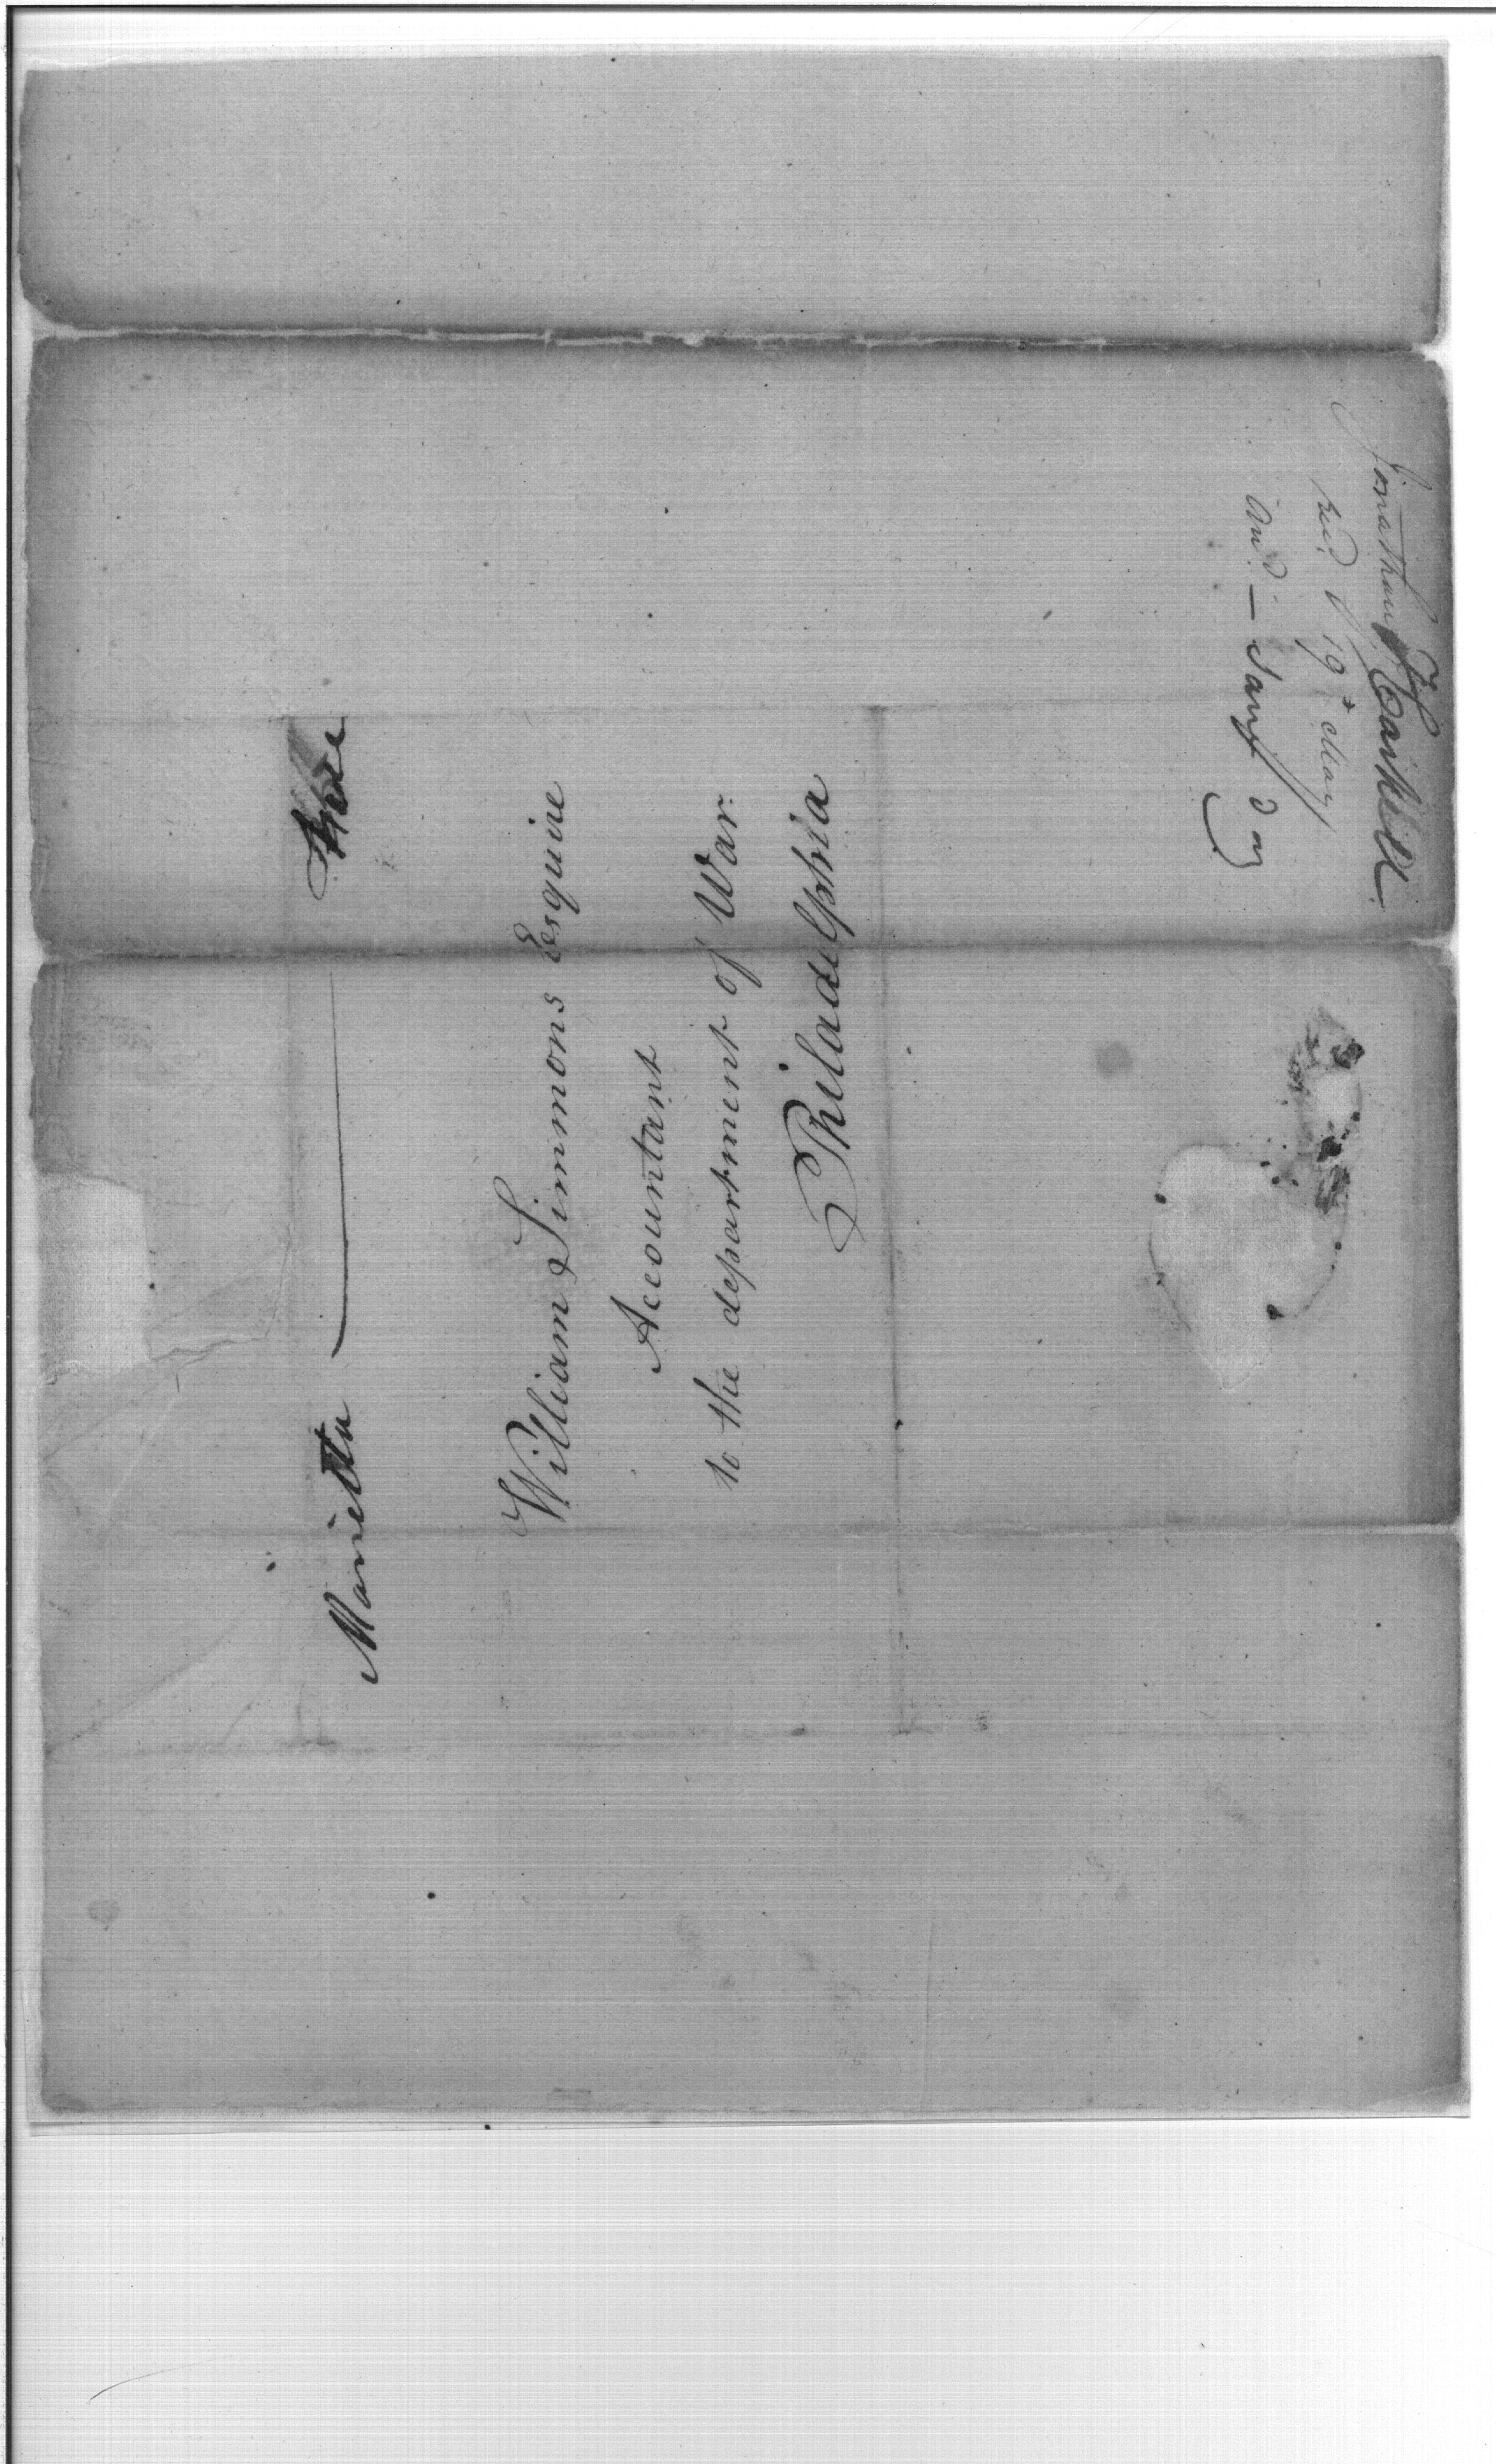 Marietta — Free
William Simmons Esquire
Accountant
to the department of War
Philadelphia
Jonathan Haskell
recd 19th May
And — Same day